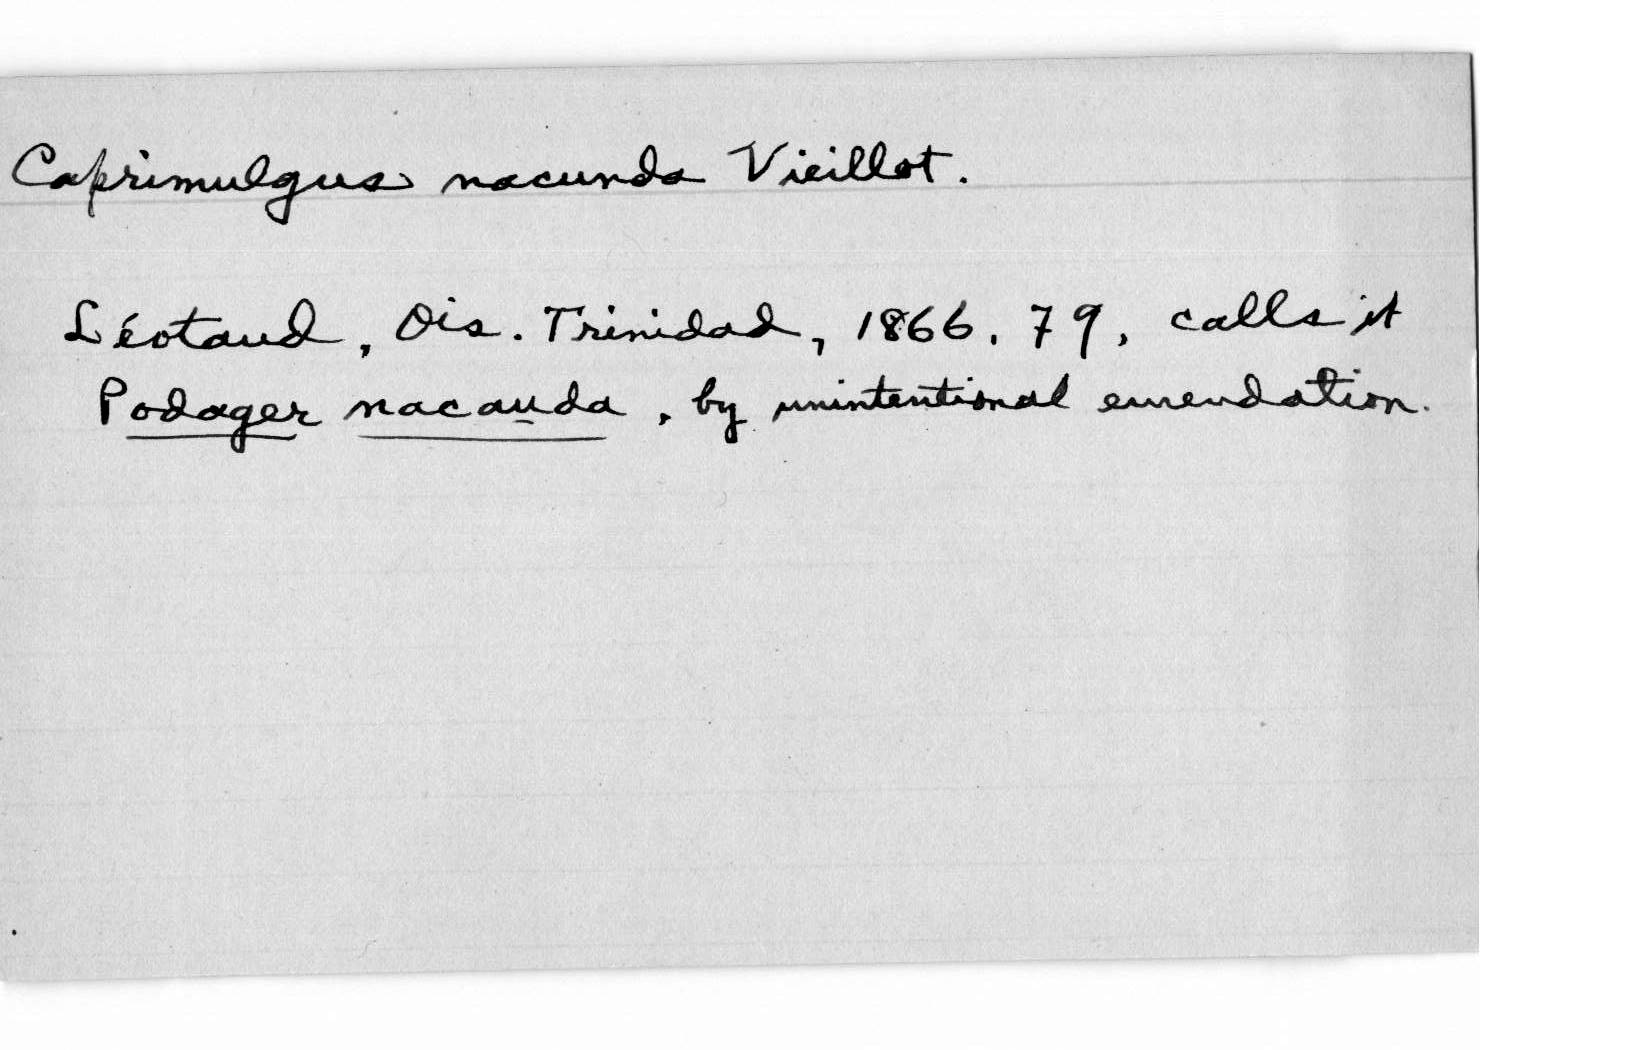 Caprimulgus nacunda Vieillot.
Léotaud, Ois. Trinidad, 1866, 79, calls it
Podager nacauda, by unintentional emendation.